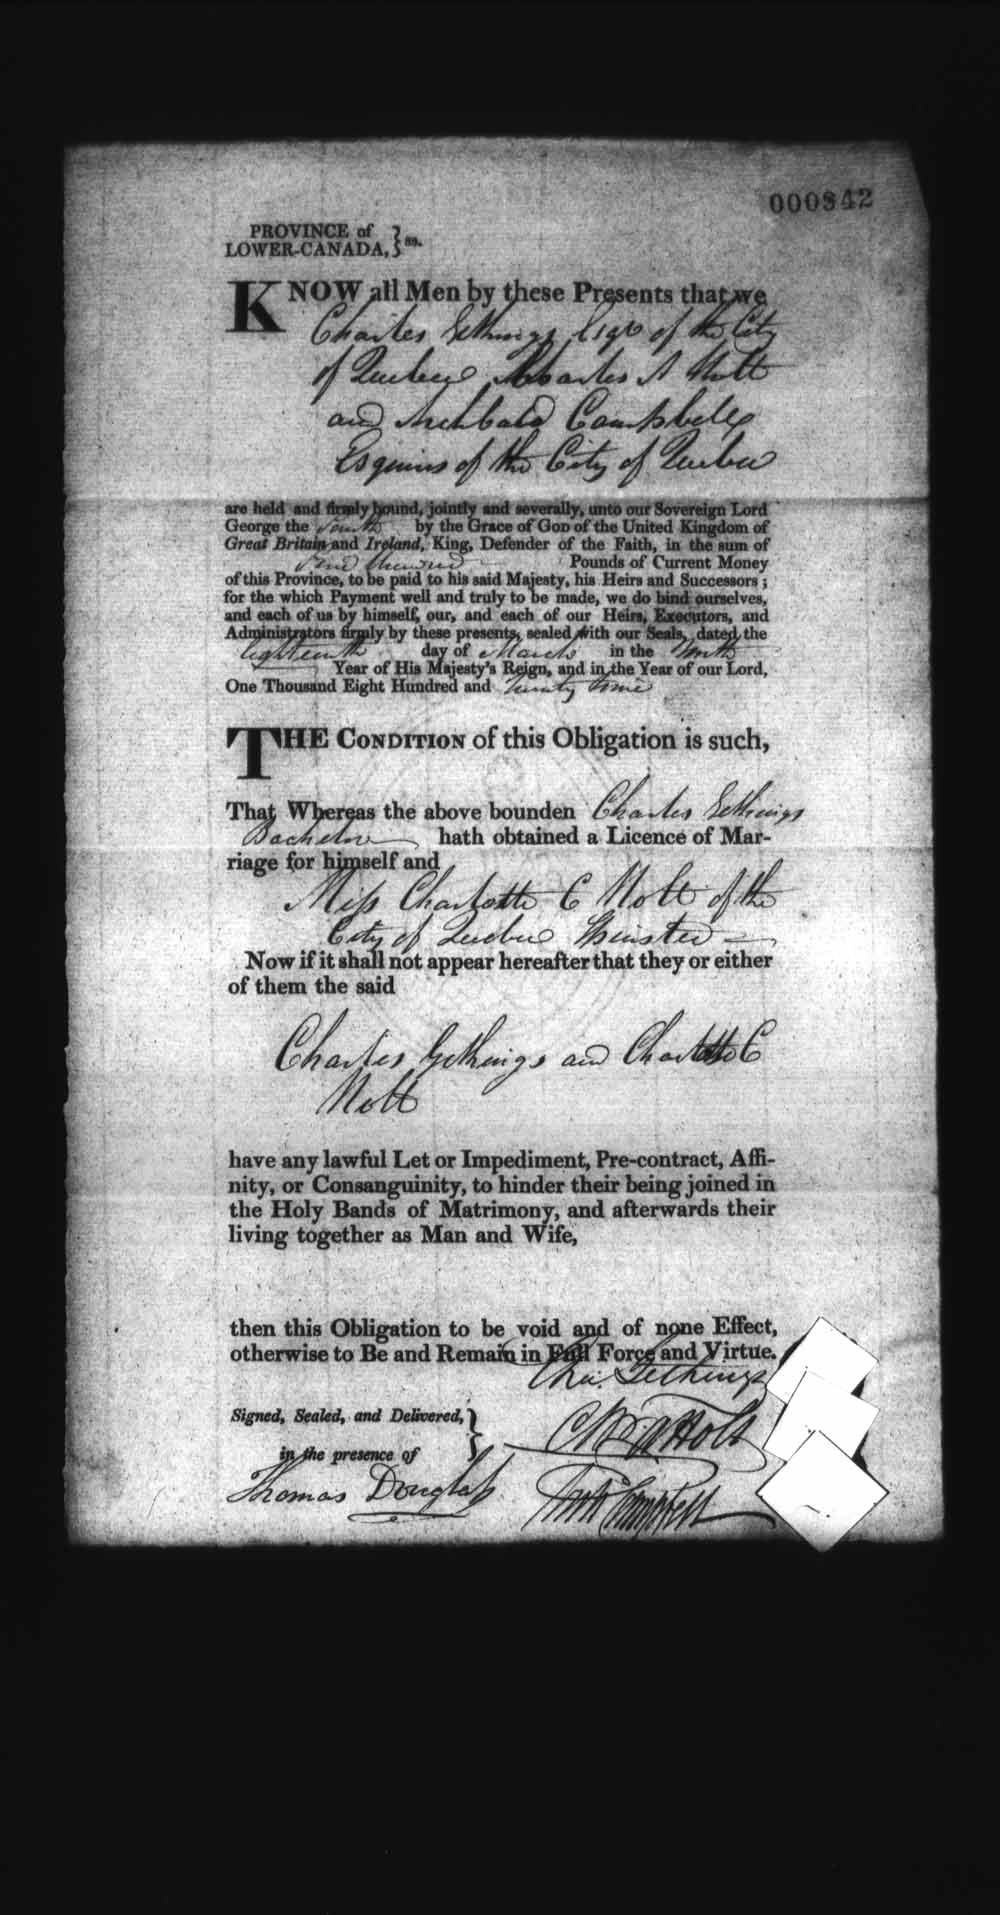 000842
PROVINCE of
LOWER-CANADA, } ss.
KNOW all Men by these Presents that we
Charles Gethings Esqr of the City
of Quebec Charles A Holt
and Archbald Campbell
Esquires of the City of Quebec
are held and firmly bound, jointly and severally, unto our Sovereign Lord
George the Fourth by the Grace of GOD of the United Kingdom of
Great Britain and Ireland, King, Defender of the Faith, in the sum of
Pounds of Current Money
of this Province, to be paid to his said Majesty, his Heirs and Successors ;
for the which Payment well and truly to be made, we do bind ourselves,
and each of us by himself, our, and each of our Heirs, Executors, and
Administrators firmly by these presents, sealed with our Seals, dated the
Eighteenth day of March in the
Year of His Majesty's Reign, and in the Year of our Lord,
One Thousand Eight Hundred and Twenty nine
THE CONDITION of this Obligation is such,
That Whereas the above bounden Charles Gethings
Bachelor hath obtained a Licence of Mar-
riage for himself and
Miss Charlotte C Holt of the
City of Quebec Spinster
Now if it shall not appear hereafter that they or either
of them the said
Charles Gethings and Charlotte C
Holt
have any lawful Let or Impediment, Pre-contract, Affi-
nity, or Consanguinity, to hinder their being joined in
the Holy Bands of Matrimony, and afterwards their
living together as Man and Wife,
then this Obligation to be void and of none Effect,
otherwise to Be and Remain in Full Force and Virtue.
Chs. Gethings
Signed, Sealed, and Delivered, }
Holt
in the presence of
Thomas Douglass
Archd Campbell